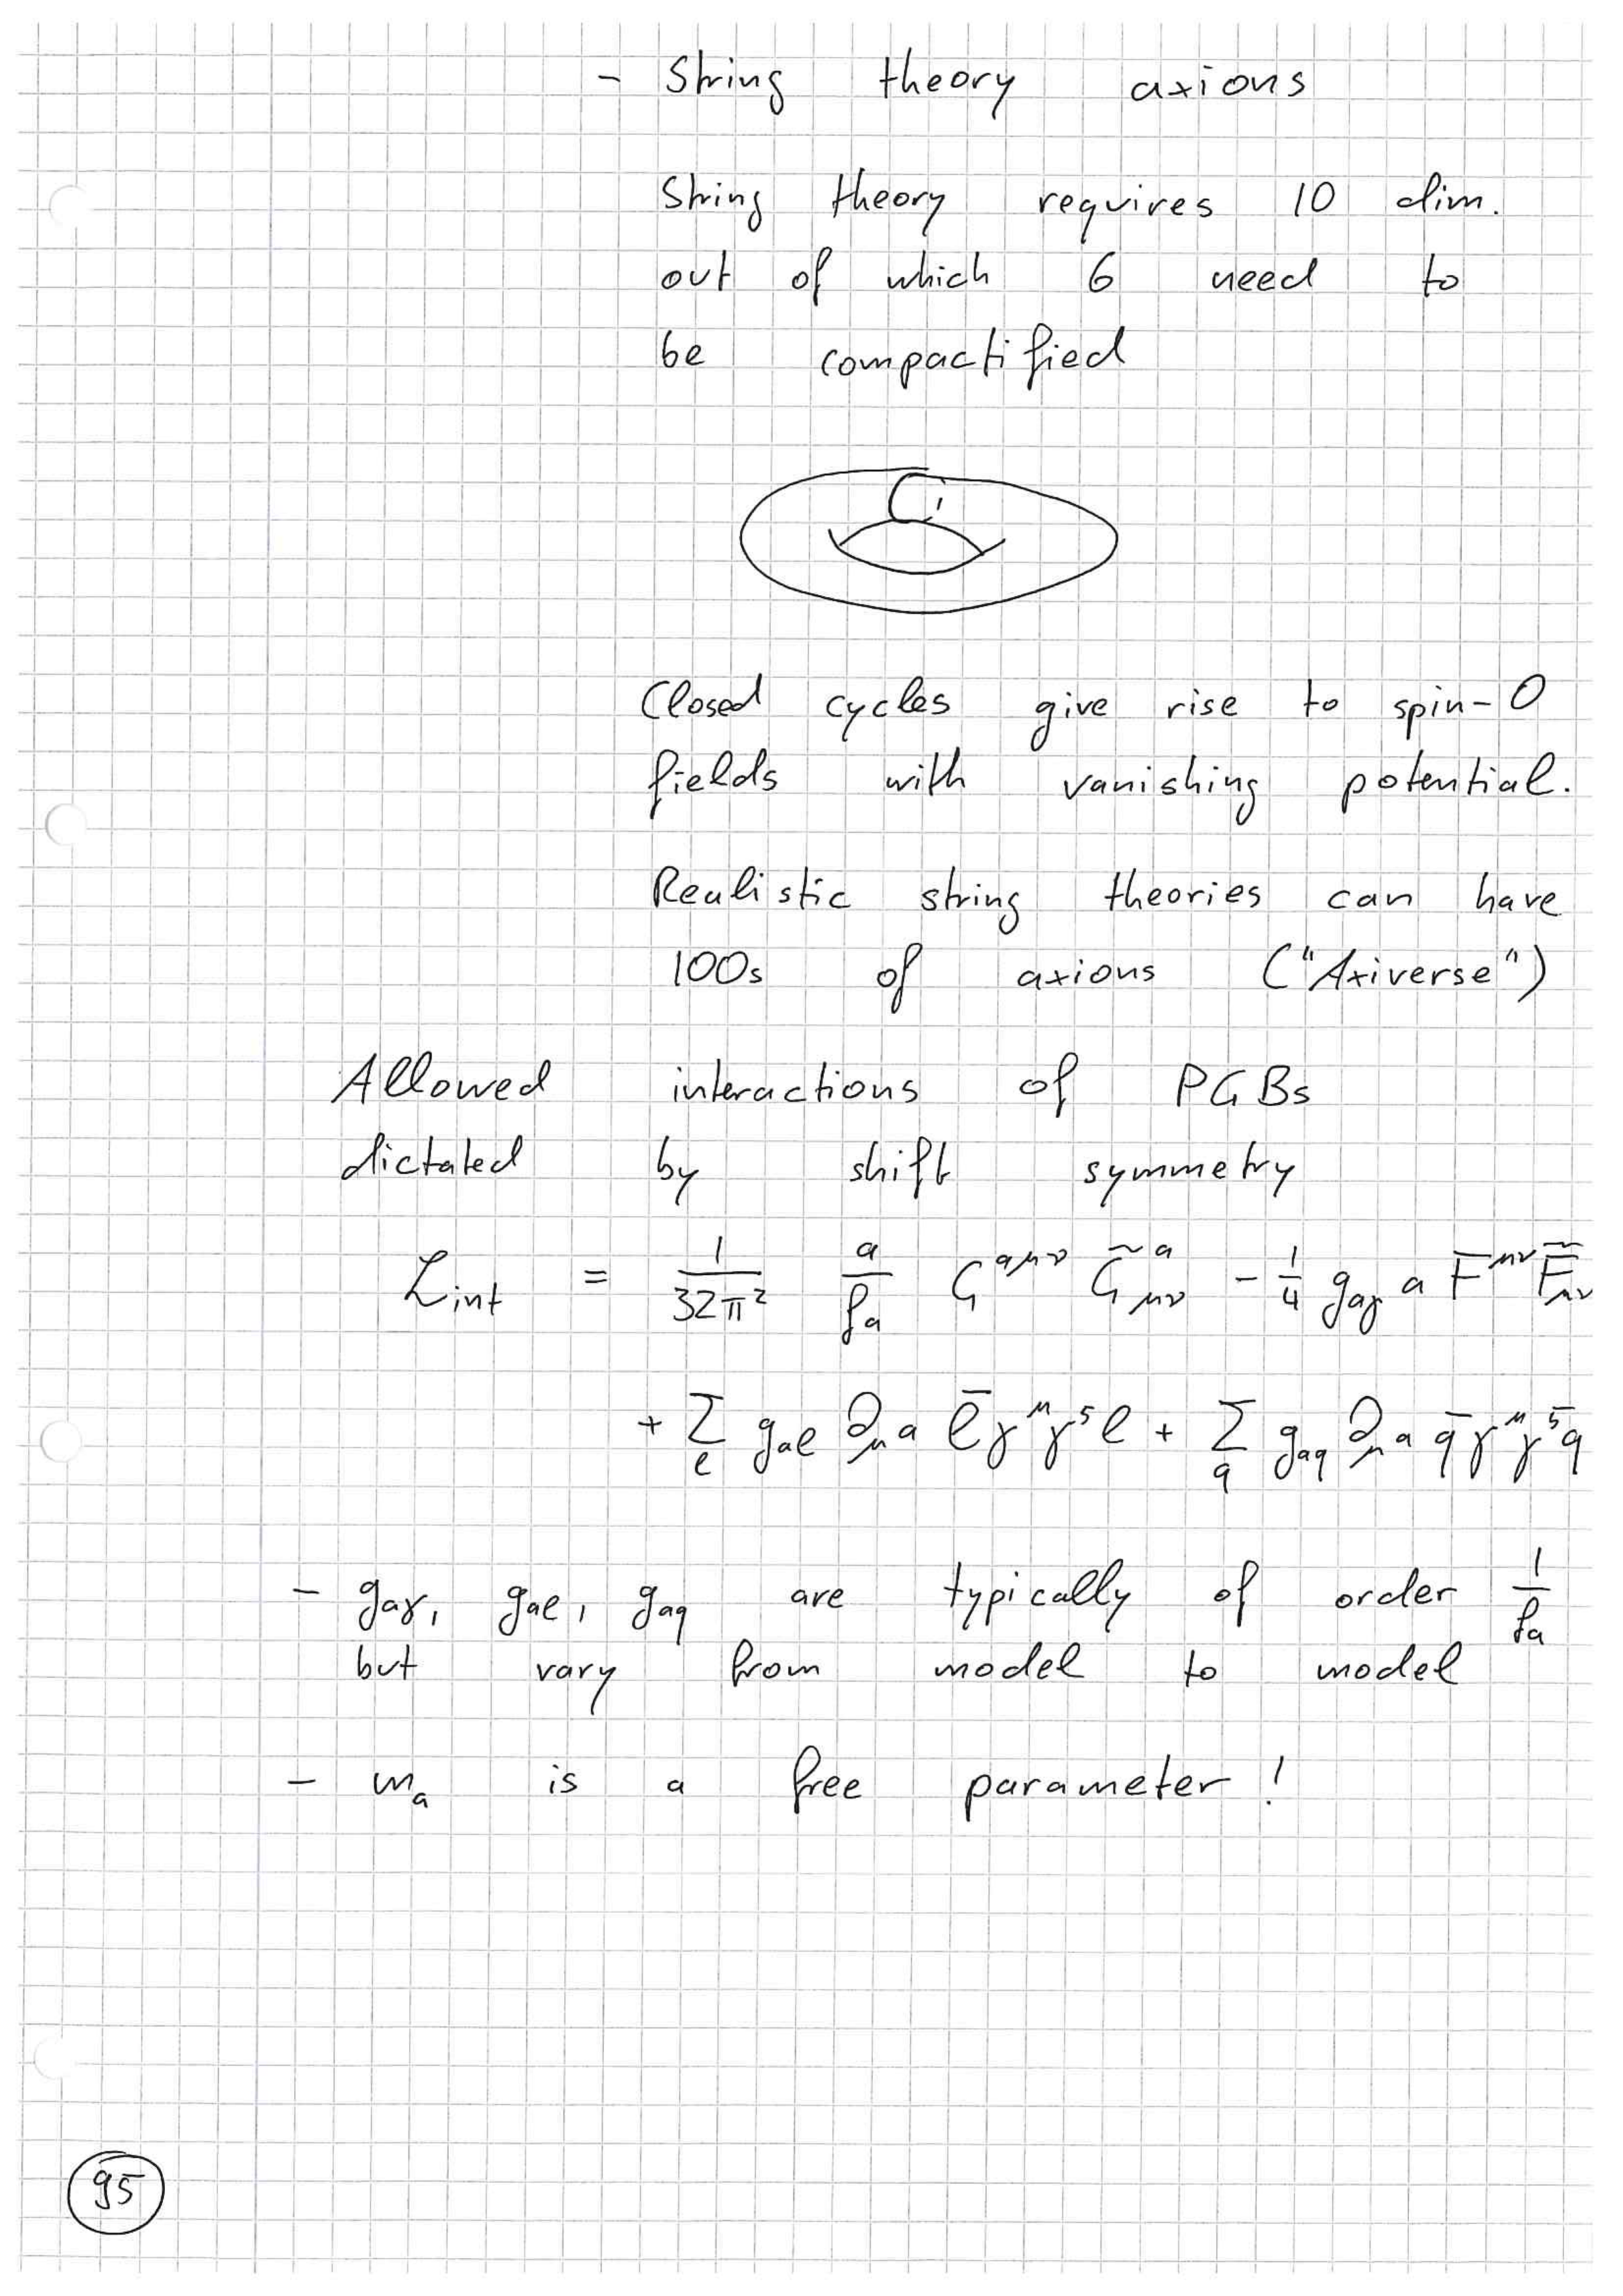 - String theory axions
String theory requires 10 dim.
out of which 6 need to
be compactified
Closed cycles give rise to spin-0
fields with vanishing potential.
Realistic string theories can have
100s of axions ("Axiverse")
Allowed interactions of PGBs
dictated by shift symmetry
$\mathcal{L}_{int} = \frac{1}{32\pi^2} \frac{a}{f_a} G^{a\mu\nu} \tilde{G}^a_{\mu\nu} - \frac{1}{4} g_{a\gamma} a F^{\mu\nu} \tilde{F}_{\mu\nu}$
$+ \sum_{\ell} g_{a\ell} \partial_\mu a \bar{\ell} \gamma^\mu \gamma^5 \ell + \sum_{q} g_{aq} \partial_\mu a \bar{q} \gamma^\mu \gamma^5 q$
- $g_{a\gamma}, g_{a\ell}, g_{aq}$ are typically of order $\frac{1}{f_a}$
but vary from model to model
- $m_a$ is a free parameter!
95